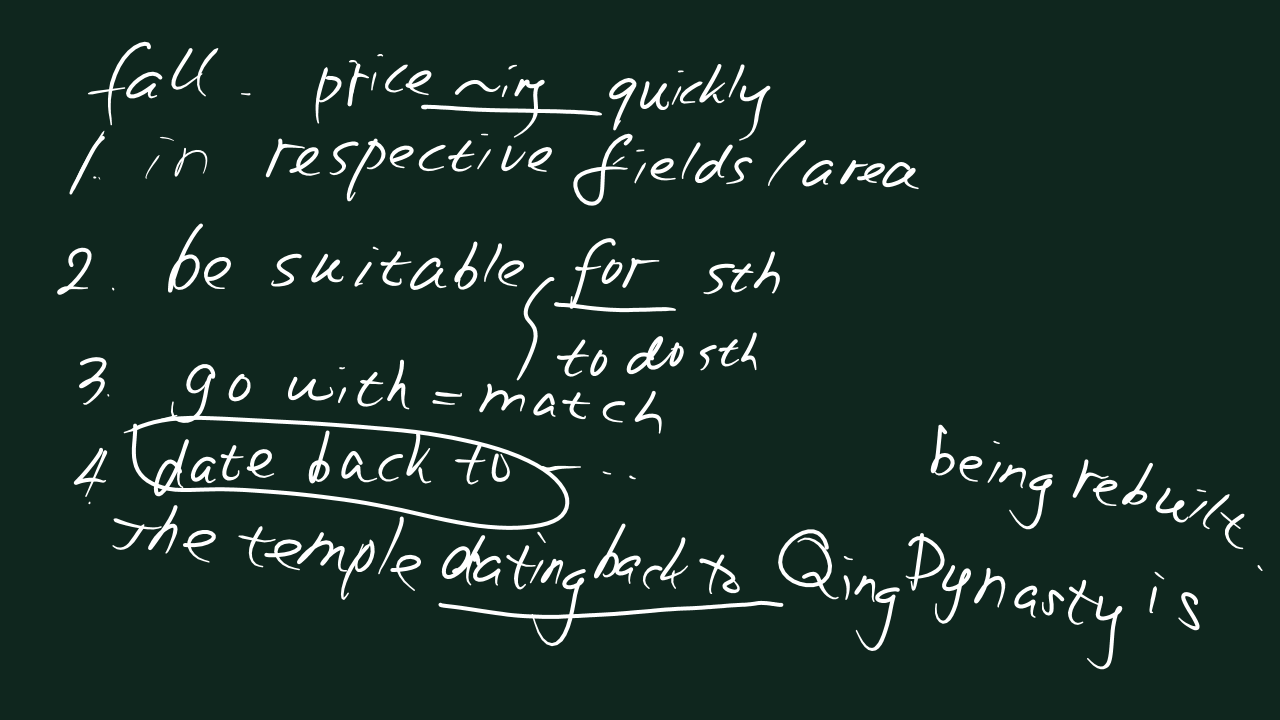 fall - price ~ing quickly
1. in respective fields / area
2. be suitable for sth
to do sth
3. go with = match
4 date back to - ...
The temple dating back to Qing Dynasty is
being rebuilt.